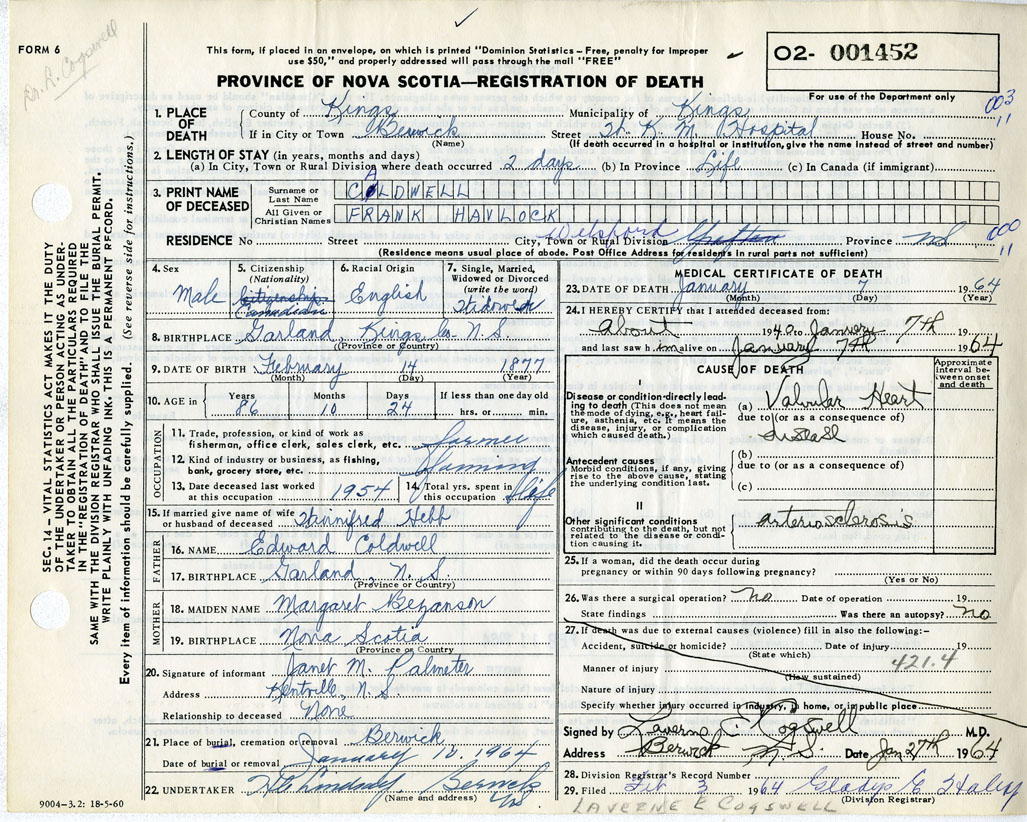 FORM 6
Dr. L. Cogswell
This form, if placed in an envelope, on which is printed "Dominion Statistics – Free, penalty for improper
use $50," and properly addressed will pass through the mail "FREE"
O2- 001452
For use of the Department only
PROVINCE OF NOVA SCOTIA—REGISTRATION OF DEATH
003
11
1. PLACE OF DEATH
County of Kings Municipality of Kings
If in City or Town Berwick Street W. K. M. Hospital House No.
(Name) (If death occurred in a hospital or institution, give the name instead of street and number)
2. LENGTH OF STAY (in years, months and days)
(a) In City, Town or Rural Division where death occurred 2 days (b) In Province Life (c) In Canada (if immigrant)
3. PRINT NAME OF DECEASED
Surname or Last Name CALDWELL
All Given or Christian Names FRANK HAVLOCK
RESIDENCE No. Street City, Town or Rural Division Welsford Grafton Province NS
000
11
(Residence means usual place of abode. Post Office Address for residents in rural parts not sufficient)
4. Sex Male
5. Citizenship (Nationality) Canadian
6. Racial Origin English
7. Single, Married, Widowed or Divorced (write the word) Widower
8. BIRTHPLACE Garland, Kings Co. N. S.
(Province or Country)
9. DATE OF BIRTH February 14 1877
(Month) (Day) (Year)
10. AGE in Years 86 Months 10 Days 24 If less than one day old hrs. or min.
OCCUPATION
11. Trade, profession, or kind of work as fisherman, office clerk, sales clerk, etc. farmer
12. Kind of industry or business, as fishing, bank, grocery store, etc. farming
13. Date deceased last worked at this occupation 1954
14. Total yrs. spent in this occupation Life
15. If married give name of wife or husband of deceased Winnifred Hebb
FATHER
16. NAME Edward Coldwell
17. BIRTHPLACE Garland, N. S.
(Province or Country)
MOTHER
18. MAIDEN NAME Margaret Bezanson
19. BIRTHPLACE Nova Scotia
(Province or Country)
20. Signature of informant Janet M. Palmeter
Address Kentville, N. S.
Relationship to deceased None
21. Place of burial, cremation or removal Berwick
Date of burial or removal January 10, 1964
22. UNDERTAKER Lindsay Berwick NS
(Name and address)
MEDICAL CERTIFICATE OF DEATH
23. DATE OF DEATH January 7 1964
(Month) (Day) (Year)
24. I HEREBY CERTIFY that I attended deceased from:
About 1940 January 7th 19
and last saw him alive on January 7th 1964
CAUSE OF DEATH
Approximate interval between onset and death
I
Disease or condition directly leading to death (This does not mean the mode of dying, e.g., heart failure, asthenia, etc. It means the disease, injury, or complication which caused death.)
(a) Valvular Heart
due to (or as a consequence of)
disease
Antecedent causes
Morbid conditions, if any, giving rise to the above cause, stating the underlying condition last.
(b)
due to (or as a consequence of)
(c)
II
Other significant conditions contributing to the death, but not related to the disease or condition causing it.
arteriosclerosis
25. If a woman, did the death occur during pregnancy or within 90 days following pregnancy?
(Yes or No)
26. Was there a surgical operation? No Date of operation 19
State findings Was there an autopsy? No
27. If death was due to external causes (violence) fill in also the following:–
Accident, suicide or homicide? Date of injury 19
(State which)
421.4
Manner of injury
(How sustained)
Nature of injury
Specify whether injury occurred in industry, in home, or in public place
Signed by Laverne E. Cogswell M.D.
Address Berwick N.S. Date Jan 27th 1964
28. Division Registrar's Record Number
29. Filed Feb 3 1964 Gladys E.
(Division Registrar)
LAVERNE E COGSWELL
9004–3.2: 18-5-60
SEC. 14 – VITAL STATISTICS ACT MAKES IT THE DUTY
OF THE UNDERTAKER OR PERSON ACTING AS UNDER-
TAKER TO OBTAIN ALL THE PARTICULARS REQUIRED
IN THE "REGISTRATION OF DEATH" AND TO FILE THE
SAME WITH THE DIVISION REGISTRAR WHO SHALL ISSUE THE BURIAL PERMIT.
WRITE PLAINLY WITH UNFADING INK. THIS IS A PERMANENT RECORD.
Every item of information should be carefully supplied. (See reverse side for instructions.)